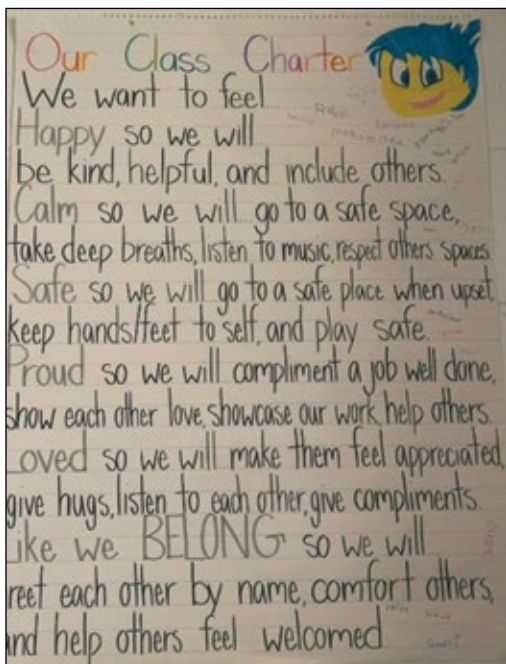 Our Class Charter
We want to feel
Happy so we will
be kind, helpful, and include others.
Calm so we will go to a safe space,
take deep breaths, listen to music, respect others spaces
Safe so we will go to a safe place when upset,
keep hands/feet to self, and play safe.
Proud so we will compliment a job well done,
show each other love, showcase our work, help others.
Loved so we will make them feel appreciated,
give hugs, listen to each other, give compliments.
Like we BELONG so we will
reet each other by name, comfort others,
and help others feel welcomed